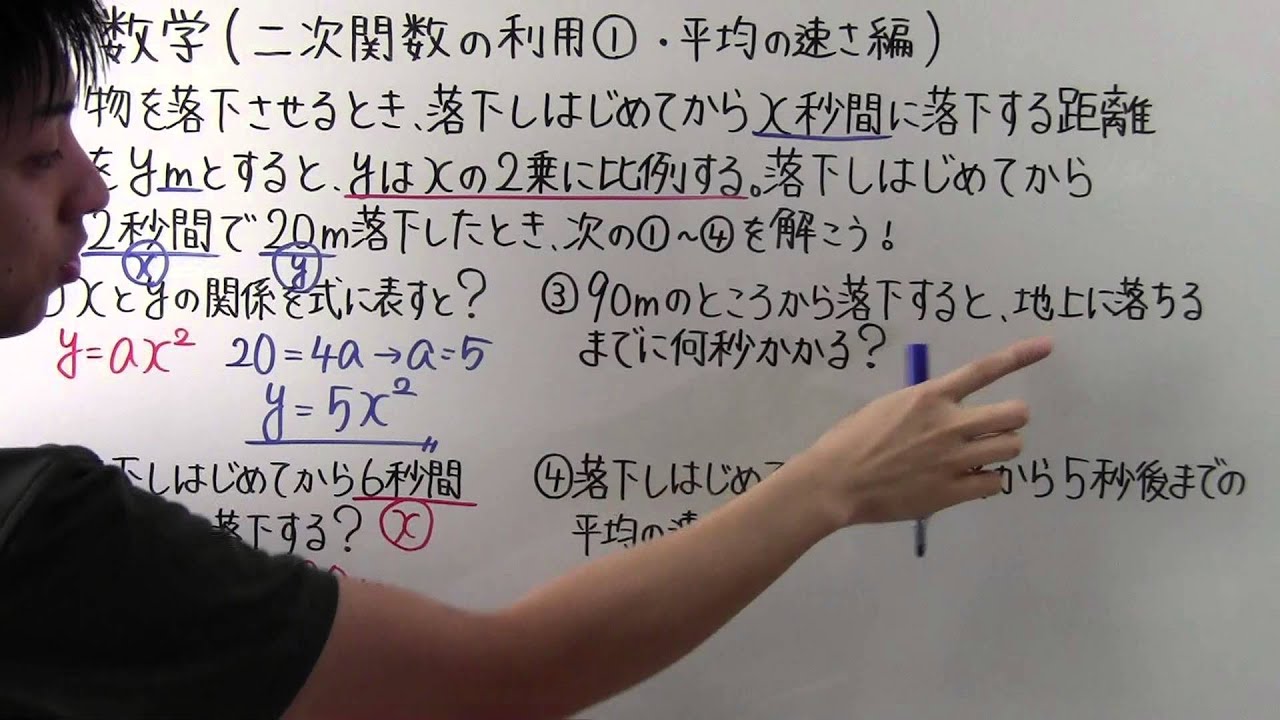 数学(二次関数の利用①・平均の速さ編)
物を落下させるとき、落下しはじめてからx秒間に落下する距離
をymとすると、yはxの2乗に比例する。落下しはじめてから
2秒間で20m落下したとき、次の①~④を解こう!
x y
xとyの関係を式に表すと?
y=ax² 20=4a→a=5
y=5x²
下しはじめてから6秒間
落下する? x
③90mのところから落下すると、地上に落ちる
までに何秒かかる?
④落下しはじめ から5秒後までの
平均の速